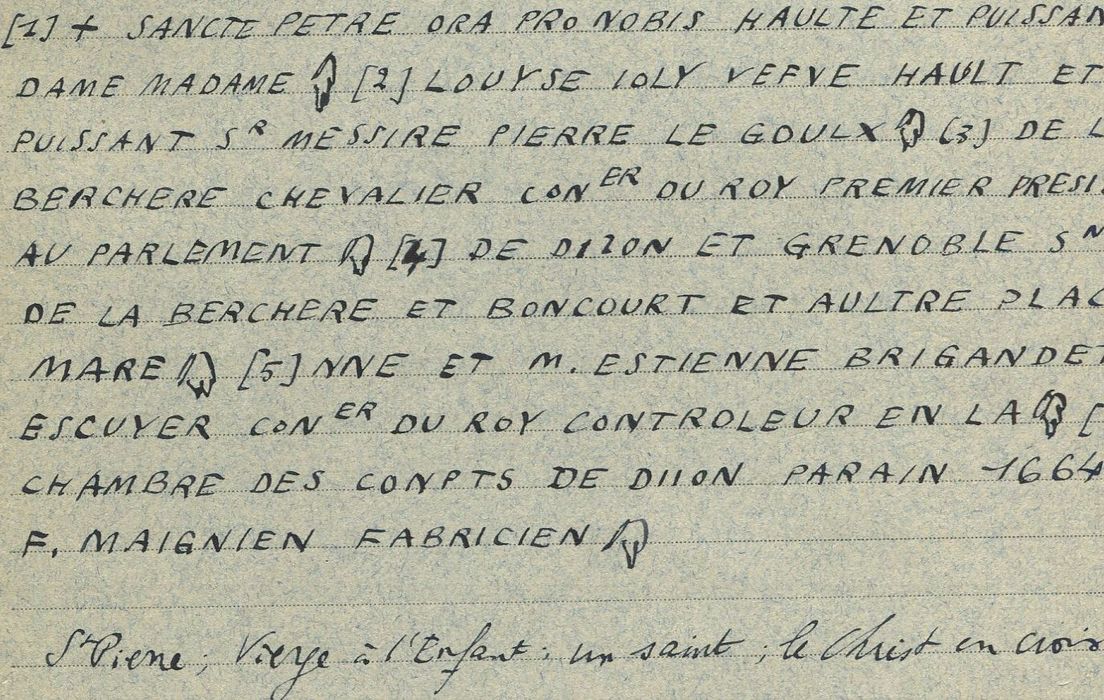 [1] + SANCTE PETRE ORA PRO NOBIS HAULTE ET PUISSAN
DAME MADAME [2] LOUYSE IOLY VEFVE HAULT ET
PUISSANT SR MESSIRE PIERRE LE GOULX [3] DE L
BERCHERE CHEVALIER CONER DU ROY PREMIER PRESI
AU PARLEMENT [4] DE DIION ET GRENOBLE SN
DE LA BERCHERE ET BONCOURT ET AULTRE PLAC
MARE [5] NNE ET M. ESTIENNE BRIGANDET
ESCUYER CONER DU ROY CONTROLEUR EN LA [
CHAMBRE DES CONPTS DE DIION PARAIN 1664
F. MAIGNIEN FABRICIEN
St Pierre ; Vierge à l'Enfant ; un saint ; le Christ en croix